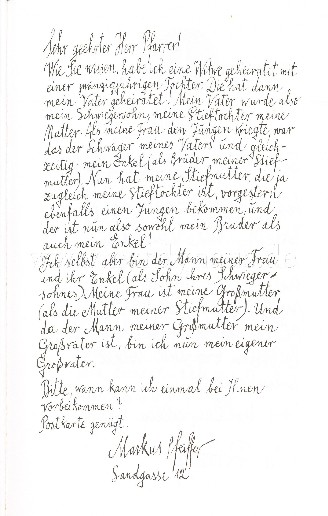 Sehr geehrter Herr Pfarrer!
Wie Sie wissen, habe ich eine Witwe geheiratet mit
einer zwanzigjährigen Tochter. Die hat dann
mein Vater geheiratet. Mein Vater wurde also
mein Schwiegersohn, meine Stieftochter meine
Mutter. Als meine Frau den Jungen kriegte, war
das der Schwager meines Vaters und gleich-
zeitig mein Enkel (als Bruder meiner Stief-
mutter). Nun hat meine Stiefmutter, die ja
zugleich meine Stieftochter ist, vorgestern
ebenfalls einen Jungen bekommen, und
der ist nun also sowohl mein Bruder als
auch mein Enkel!
Ich selbst aber bin der Mann meiner Frau
und ihr Enkel (als Sohn ihres Schwieger-
sohnes). Meine Frau ist meine Großmutter
(als die Mutter meiner Stiefmutter). Und
da der Mann meiner Großmutter mein
Großvater ist, bin ich nun mein eigener
Großvater.
Bitte, wann kann ich einmal bei Ihnen
vorbeikommen?
Postkarte genügt.
Markus Pfeiffer
Sandgasse 12